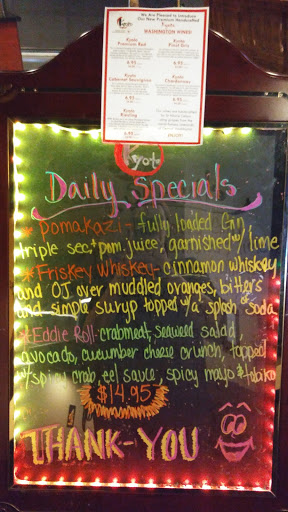 We Are Pleased to Introduce
Our New Premium Handcrafted
Kyoto
WASHINGTON WINES!
Kyoto
Premium Red
6.95
Kyoto
Pinot Gris
6.95
Kyoto
Cabernet Sauvignon
6.95
Kyoto
Chardonnay
6.95
Kyoto
Riesling
6.95
Kyoto
Daily Specials
* Pomakazi - fully loaded Gin,
triple sec, + pom. juice, garnished w/ lime
* Friskey Whiskey - cinnamon whiskey
and OJ over muddled oranges, bitters
and simple suryp topped w/ a splash of soda
* Eddie Roll - crabmeat, seaweed salad,
avocado, cucumber cheese crunch, topped
w/ spicy crab, eel sauce, spicy mayo & tobiko
$14.95
THANK-YOU